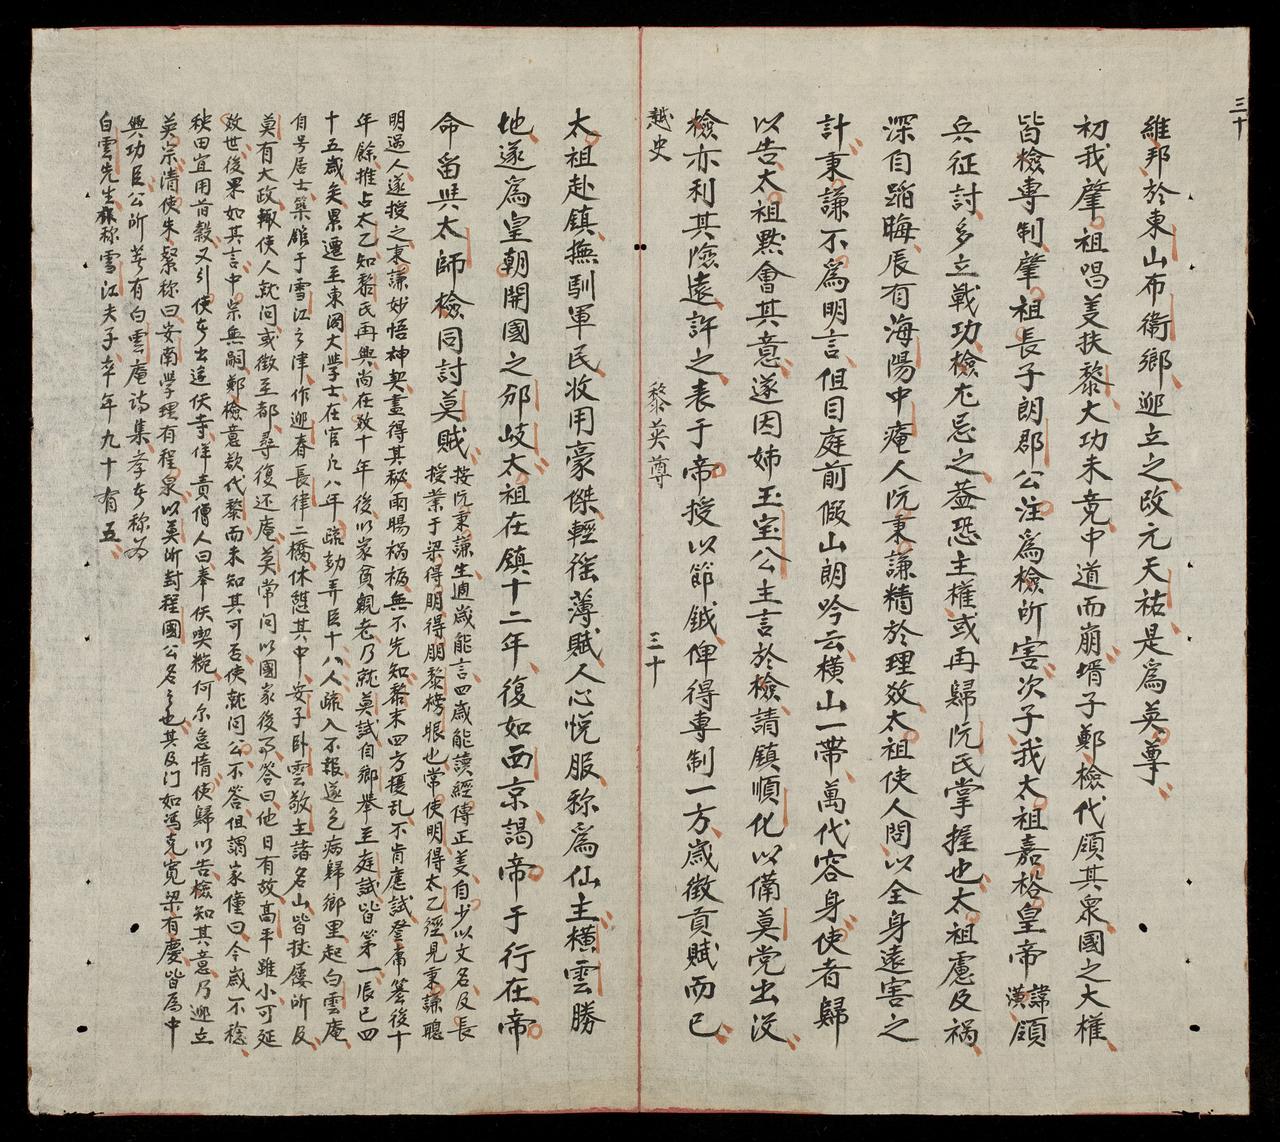 三十
維邦於東山布衛鄉迎立之改元天祐是為英尊
初我肇祖唱義扶黎大功未竟中道而崩壻子鄭檢代領其衆國之大權
皆檢専制肇祖長子朗郡公汪為檢所害次子我太祖嘉裕皇帝諱潢領
兵征討多立戰功檢尤忌之葢恐主權或再歸阮氏掌握也太祖慮及禍
深自韜晦辰有海陽中庵人阮秉謙精於理效太祖使人問以全身遠害之
計秉謙不爲明言但目庭前假山朗吟云橫山一帶萬代容身使者歸
以告太祖黙會其意遂因姉玉宝公主言於檢請鎮順化以備莫党出没
檢亦利其險遠許之表于帝授以節鉞俾得専制一方歲徵貢賦而已
越史 黎英尊 三十
太祖赴鎮撫馴軍民收用豪傑輕徭薄賦人心悅服称爲仙主橫雲勝
地遂爲皇朝開國之邠岐太祖在鎮十二年復如西京謁帝于行在帝
命留與太師檢同討莫賊按阮秉謙生週歲能言四歲能讀經傳正义自少以文名及長
授業于梁得朋得朋黎榜眼也常使明得太乙經見秉謙聰
明過人遂授之秉謙妙悟神契盡得其秘雨暘禍福無不先知黎末四方擾乱不肯應試登庸簒後十
年餘推占太乙知黎氏再興尚在效十年後以家貧親老乃就莫試自鄉舉至庭試皆第一辰已四
十五歲矣累遷至東阁大學士在官凢八年疏劾弄臣十八人疏入不報遂乞病歸鄉里起白雲庵
自号居士築舘于雪江之津作迎春長律二橋休憇其中安子卧雲敬主諸名山皆杖屨所及
莫有大政輙使人就问或徵至都尋復还庵莫常问以國家後事答曰他日有故高平雖小可延
效世後果如其言中宗無嗣鄭檢意欲代黎而未知其可否使就问公不答但謂家僮曰今歲不稔
秧田宜用昔穀又引使者出遊伕寺佯責僧人曰奉伕喫椀何尔怠惰使歸以告檢知其意乃迎立
英宗清使朱粲称曰安南學理有程泉以莫所封程國公名之也其及门如馮克寛梁有慶皆爲中
興功臣公所著有白雲庵诗集孝者称为
白雲先生称雪江夫子卒年九十有五